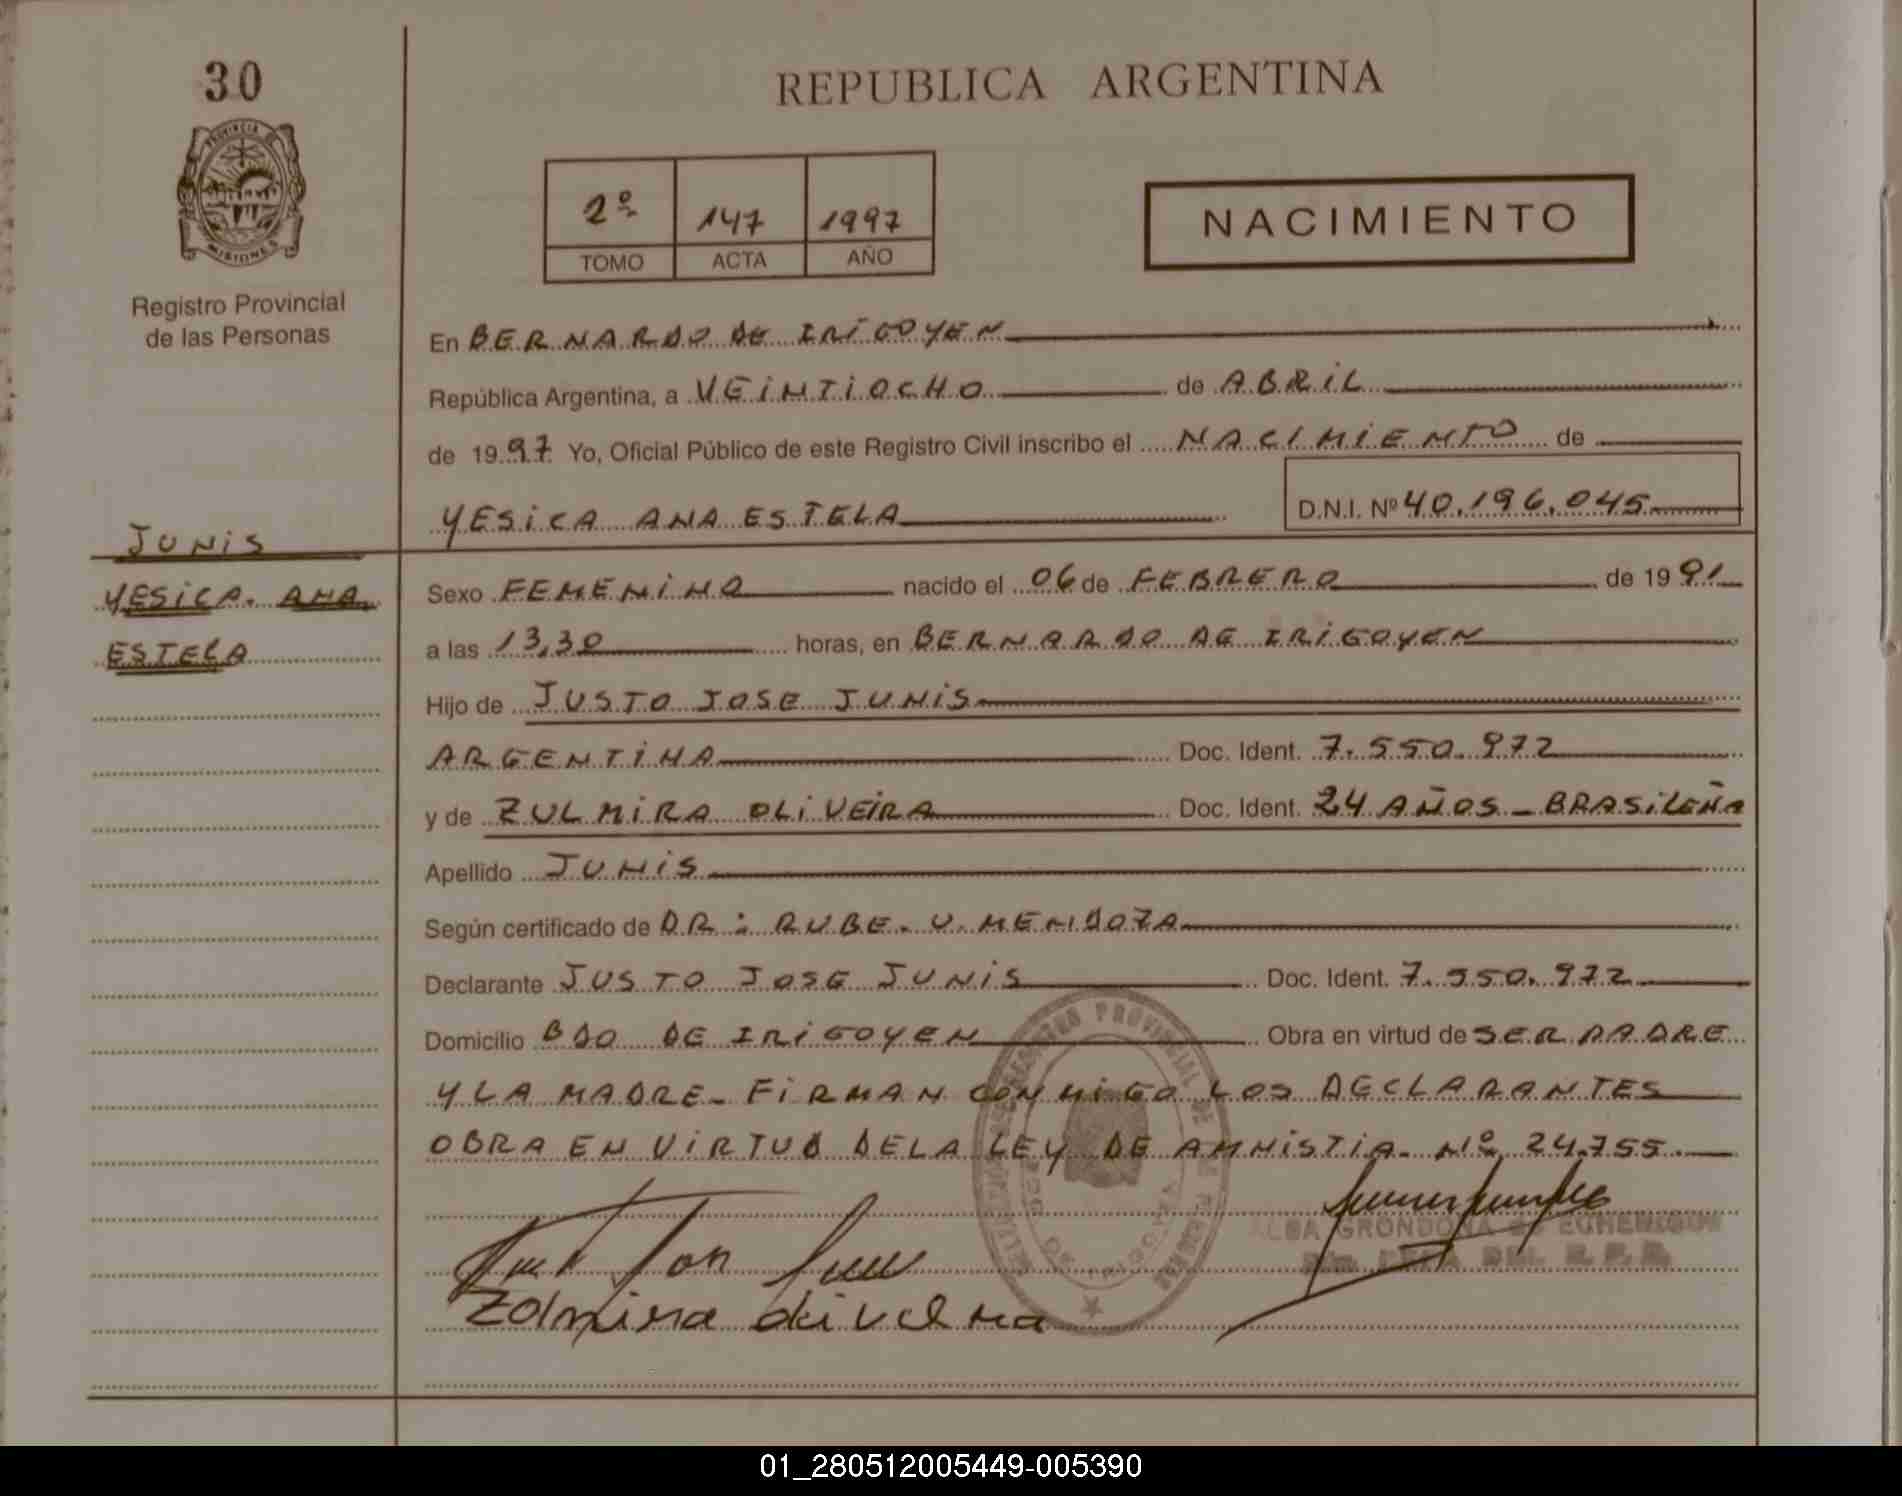 30
PROVINCIA DE
MISIONES
Registro Provincial
de las Personas
REPUBLICA ARGENTINA
2º 147 1997
TOMO ACTA AÑO
NACIMIENTO
En BERNARDO DE IRIGOYEN
República Argentina, a VEINTIOCHO de ABRIL
de 1997 Yo, Oficial Público de este Registro Civil inscribo el NACIMIENTO de
YESICA ANA ESTELA D.N.I. Nº 40.196.045
JUNIS
YESICA. ANA
ESTELA
Sexo FEMENINO nacido el 06 de FEBRERO de 1991
a las 13,30 horas, en BERNARDO DE IRIGOYEN
Hijo de JUSTO JOSE JUNIS
ARGENTINA Doc. Ident. 7.550.972
y de ZULMIRA OLIVEIRA Doc. Ident. 24 AÑOS - BRASILEÑA
Apellido JUNIS
Según certificado de DR: RUBE. V. MENDOZA
Declarante JUSTO JOSE JUNIS Doc. Ident. 7.550.972
Domicilio BDO DE IRIGOYEN Obra en virtud de SER PADRE
Y LA MADRE - FIRMAN CONMIGO LOS DECLARANTES
OBRA EN VIRTUD DE LA LEY DE AMNISTIA. Nº 24.755.
REGISTRO PROVINCIAL DE LAS PERSONAS
DE IRIGOYEN
ALBA GRONDONA DE
01_280512005449-005390